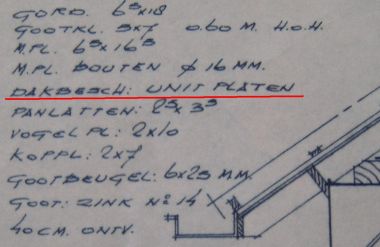 GORD. 6⁵x18
GOOTKL. 5x7 0.60 M. H.O.H.
M.PL. 6⁵x16⁵
M.PL. BOUTEN ϕ 16 MM.
DAKBESCH: UNIT PLATEN
PANLATTEN: 2⁵x3⁵
VOGEL PL: 2x10
KOPPL: 2x7
GOOTBEUGEL: 6x25 M.M.
GOOT: ZINK Nº 14
40 CM. ONTW.